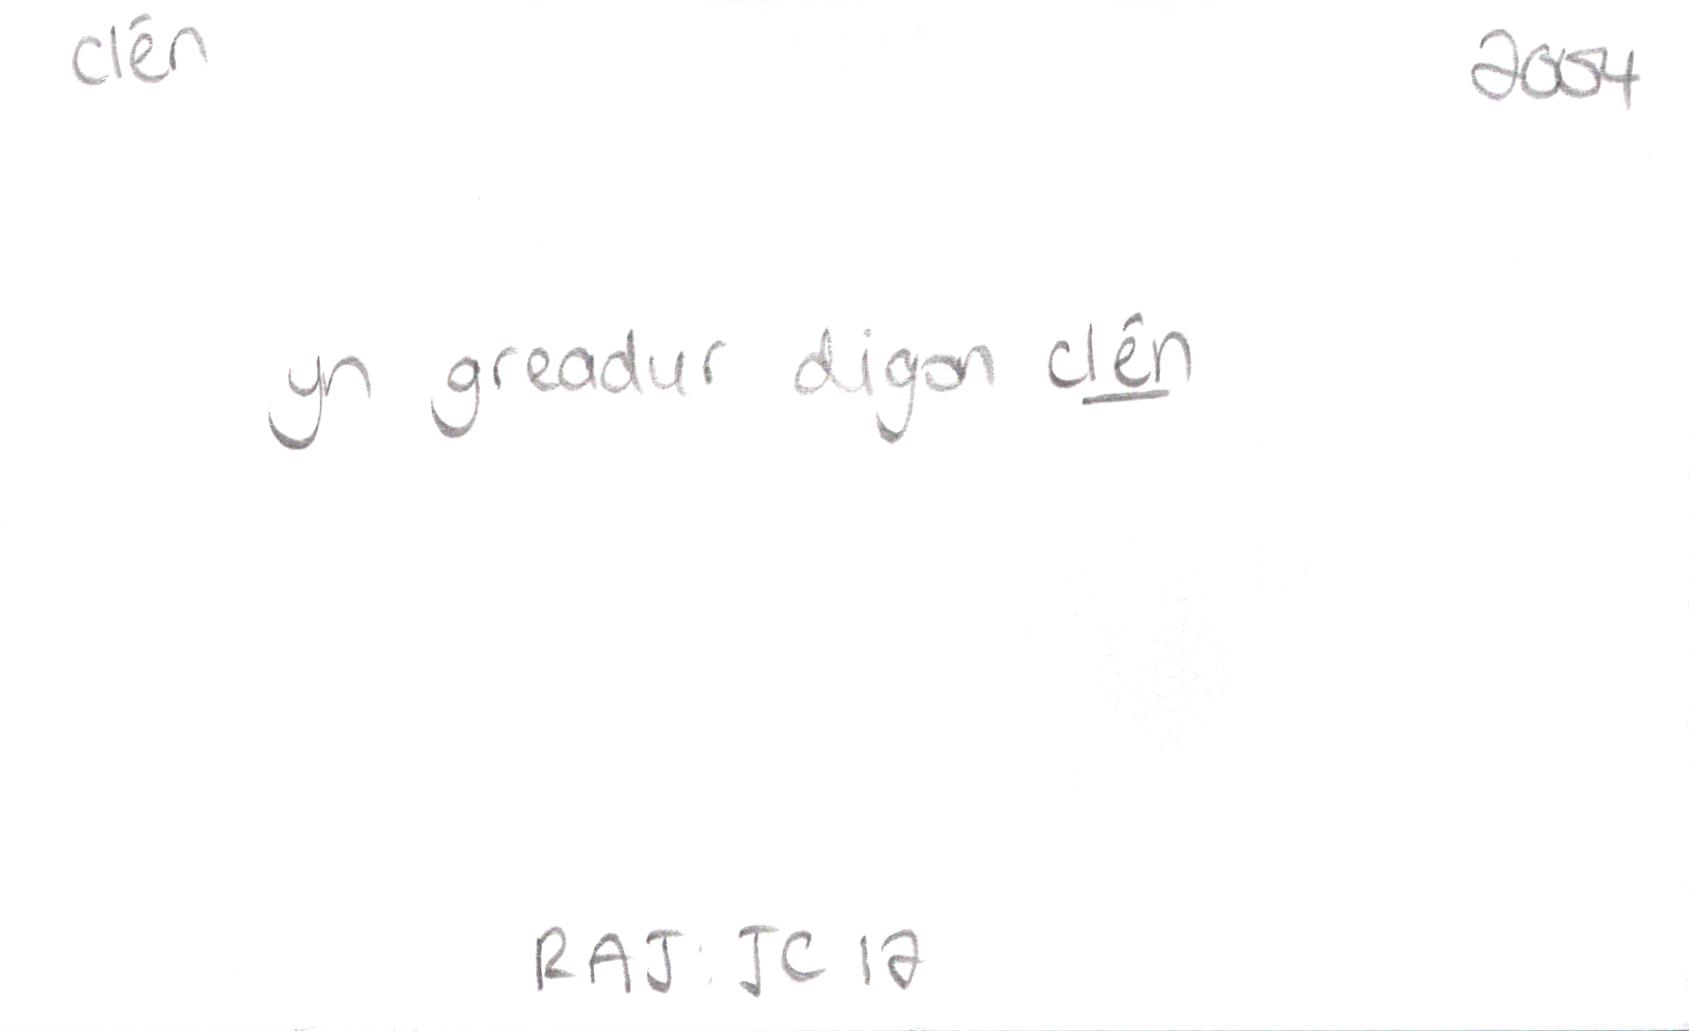 clên 2004
yn greadur digon clên
RAJ: JC 12